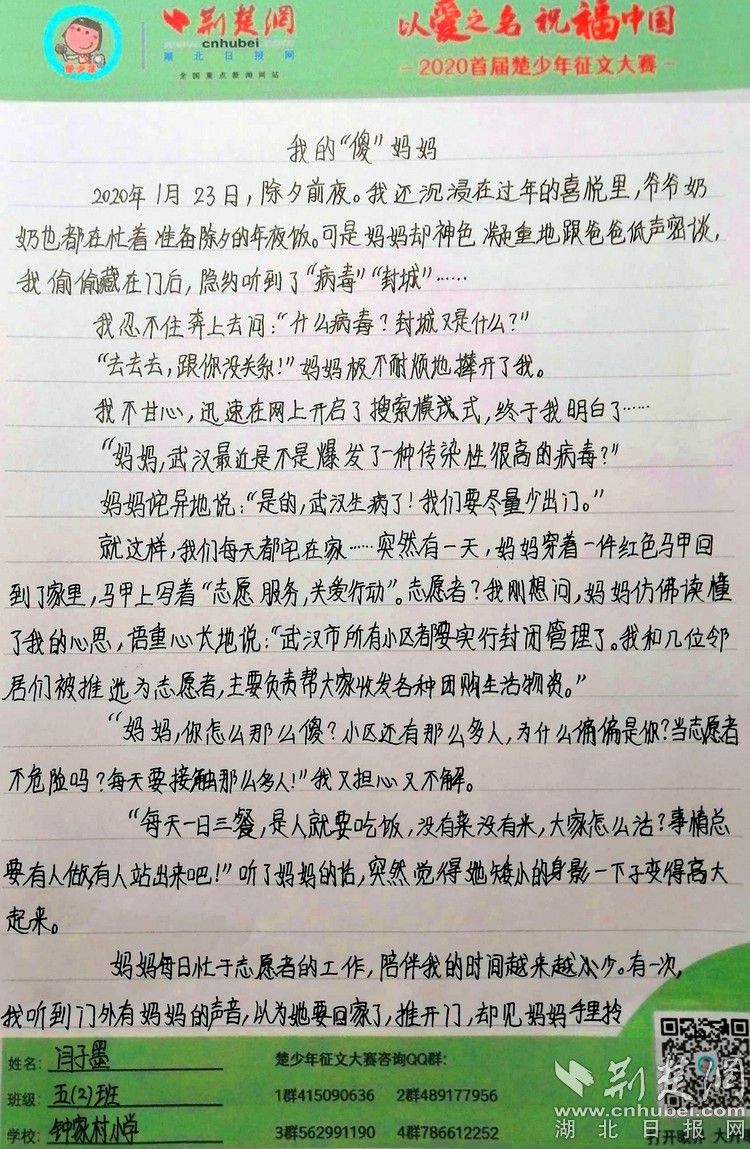 荆楚网
www.cnhubei.com
湖北日报网
全国重点新闻网站
以爱之名 祝福中国
2020首届楚少年征文大赛
我的“傻”妈妈
2020年1月23日，除夕前夜。我还沉浸在过年的喜悦里，爷爷奶
奶也都在忙着准备除夕的年夜饭。可是妈妈却神色凝重地跟爸爸低声密谈，
我偷偷藏在门后，隐约听到了“病毒”“封城”……
我忍不住奔上去问：“什么病毒？封城又是什么？”
“去去去，跟你没关系！”妈妈极不耐烦地撵开了我。
我不甘心，迅速在网上开启了搜索模式，终于我明白了……
“妈妈，武汉最近是不是爆发了一种传染性很高的病毒？”
妈妈诧异地说：“是的，武汉生病了！我们要尽量少出门。”
就这样，我们每天都宅在家……突然有一天，妈妈穿着一件红色马甲回
到了家里，马甲上写着“志愿服务，关爱行动”。志愿者？我刚想问，妈妈仿佛读懂
了我的心思，语重心长地说：“武汉市所有小区都要实行封闭管理了。我和几位邻
居们被推选为志愿者，主要负责帮大家收发各种团购生活物资。”
“妈妈，你怎么那么傻？小区还有那么多人，为什么偏偏是你？当志愿者
不危险吗？每天要接触那么多人！”我又担心又不解。
“每天一日三餐，是人就要吃饭，没有菜没有米，大家怎么活？事情总
要有人做，有人站出来吧！”听了妈妈的话，突然觉得她矮小的身影一下子变得高大
起来。
妈妈每日忙于志愿者的工作，陪伴我的时间越来越少。有一次，
我听到门外有妈妈的声音，以为她要回家了，推开门，却见妈妈手里拎
姓名：闫子墨
班级：五(2)班
学校：钟家村小学
楚少年征文大赛咨询QQ群：
1群415090636 2群489177956
3群562991190 4群786612252
荆楚网
www.cnhubei.com
湖北日报网
打开眼界